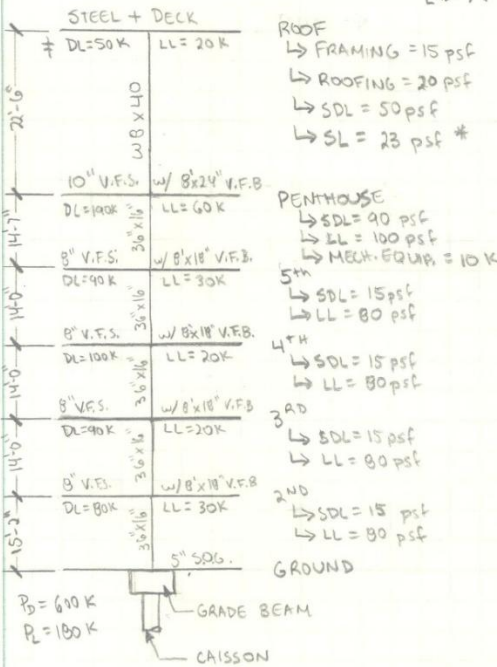 STEEL + DECK
DL=50K LL=20K
22'-6"
W8x40
10" V.F.S. w/ 8"x24" V.F.B
DL=190K LL=60K
14'-7"
36"x16"
8" V.F.S. w/ 8"x18" V.F.B.
DL=90K LL=30K
14'-0"
36"x16"
8" V.F.S. w/ 8"x18" V.F.B.
DL=100K LL=20K
14'-0"
36"x16"
8" V.F.S. w/ 8"x18" V.F.B
DL=90K LL=20K
14'-0"
36"x16"
8" V.F.S. w/ 8"x18" V.F.B
DL=80K LL=30K
15'-2"
36"x16"
5" S.O.G.
GRADE BEAM
CAISSON
PD=600K
PL=180K
ROOF
↳ FRAMING = 15 psf
↳ ROOFING = 20 psf
↳ SDL = 50 psf
↳ SL = 23 psf *
PENTHOUSE
↳ SDL = 90 psf
↳ LL = 100 psf
↳ MECH. EQUIP. = 10 K
5TH
↳ SDL = 15 psf
↳ LL = 80 psf
4TH
↳ SDL = 15 psf
↳ LL = 80 psf
3RD
↳ SDL = 15 psf
↳ LL = 80 psf
2ND
↳ SDL = 15 psf
↳ LL = 80 psf
GROUND